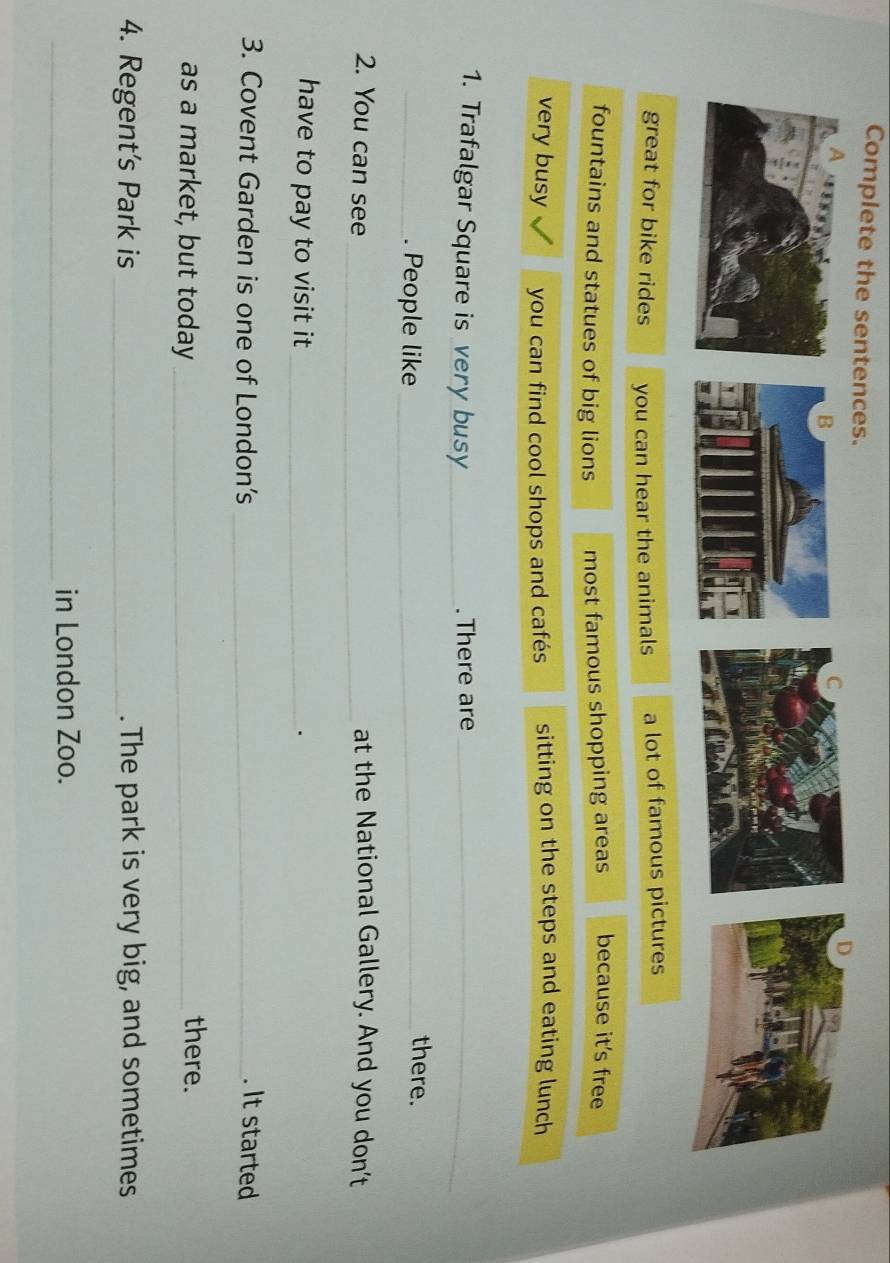 Complete the sentences.
A B C D
great for bike rides you can hear the animals a lot of famous pictures
fountains and statues of big lions most famous shopping areas because it's free
very busy ✓ you can find cool shops and cafés sitting on the steps and eating lunch
1. Trafalgar Square is very busy ______. There are ______
______. People like ______ there.
2. You can see ______ at the National Gallery. And you don't
have to pay to visit it ______.
3. Covent Garden is one of London's ______. It started
as a market, but today ______ there.
4. Regent's Park is ______. The park is very big, and sometimes
______ in London Zoo.